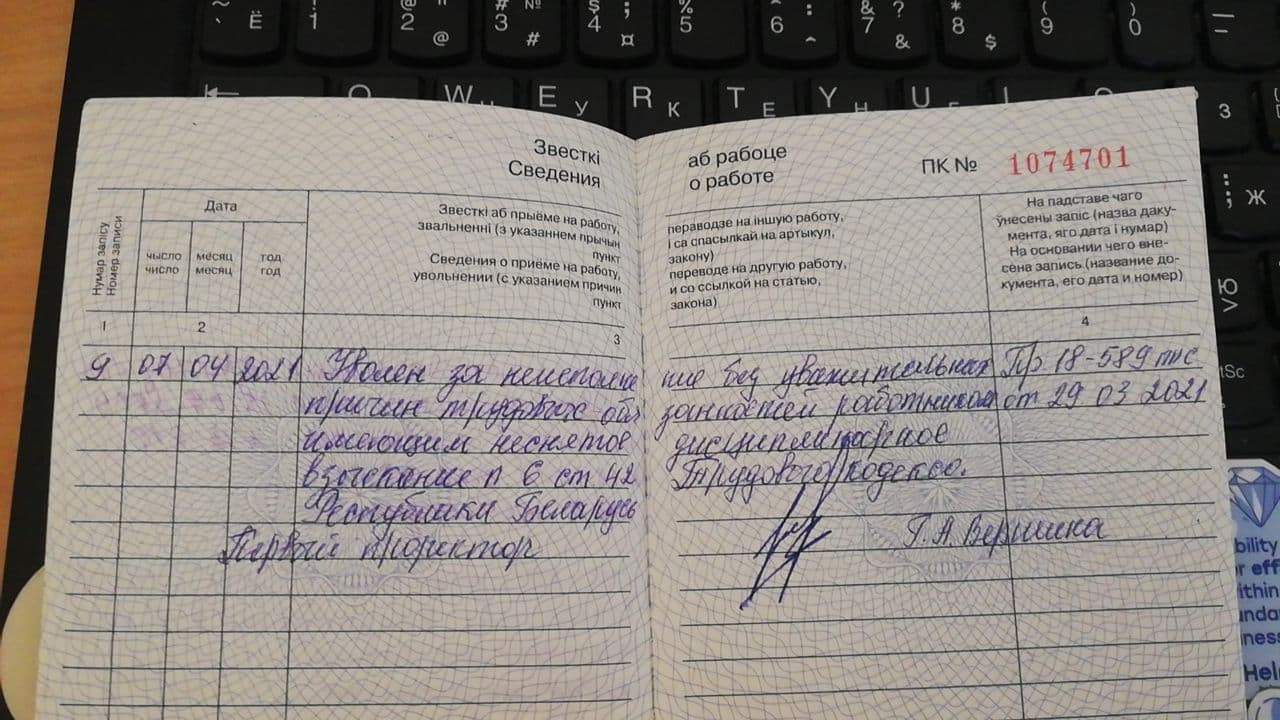 ~ ` Ё
! 1
@ 2 " @
# 3 № #
$ 4 ; ¤
% 5
6 : ^
& 7 ? &
* 8 $
( 9
) 0
Q W E У R К T Е Y Н U I O
З
Ж
Ю
>
tSc
Звесткі
Сведения
аб рабоце
о работе
ПК № 1074701
Нумар запісу
Номер записи
Дата
чысло
число
месяц
месяц
год
год
Звесткі аб прыёме на работу,
звальненні (з указаннем прычын
пункт
Сведения о приёме на работу,
увольнении (с указанием причин
пункт
пераводзе на іншую работу,
і са спасылкай на артыкул,
закону)
переводе на другую работу,
и со ссылкой на статью,
закона)
На падставе чаго
ўнесены запіс (назва даку-
мента, яго дата і нумар)
На основании чего вне-
сена запись (название до-
кумента, его дата и номер)
1 2 3 4
9 07 04 2021 Уволен за неисполне ние без уважительных Пр 18-589 лис
причин трудовых обя занностей работником от 29 03 2021
имеющим неснятое дисциплинарное
взыскание п 6 ст 42 Трудового кодекса.
Республики Беларусь
Первый проректор Г.А. Вершина
bility
or eff
within
unda
ines
Hel